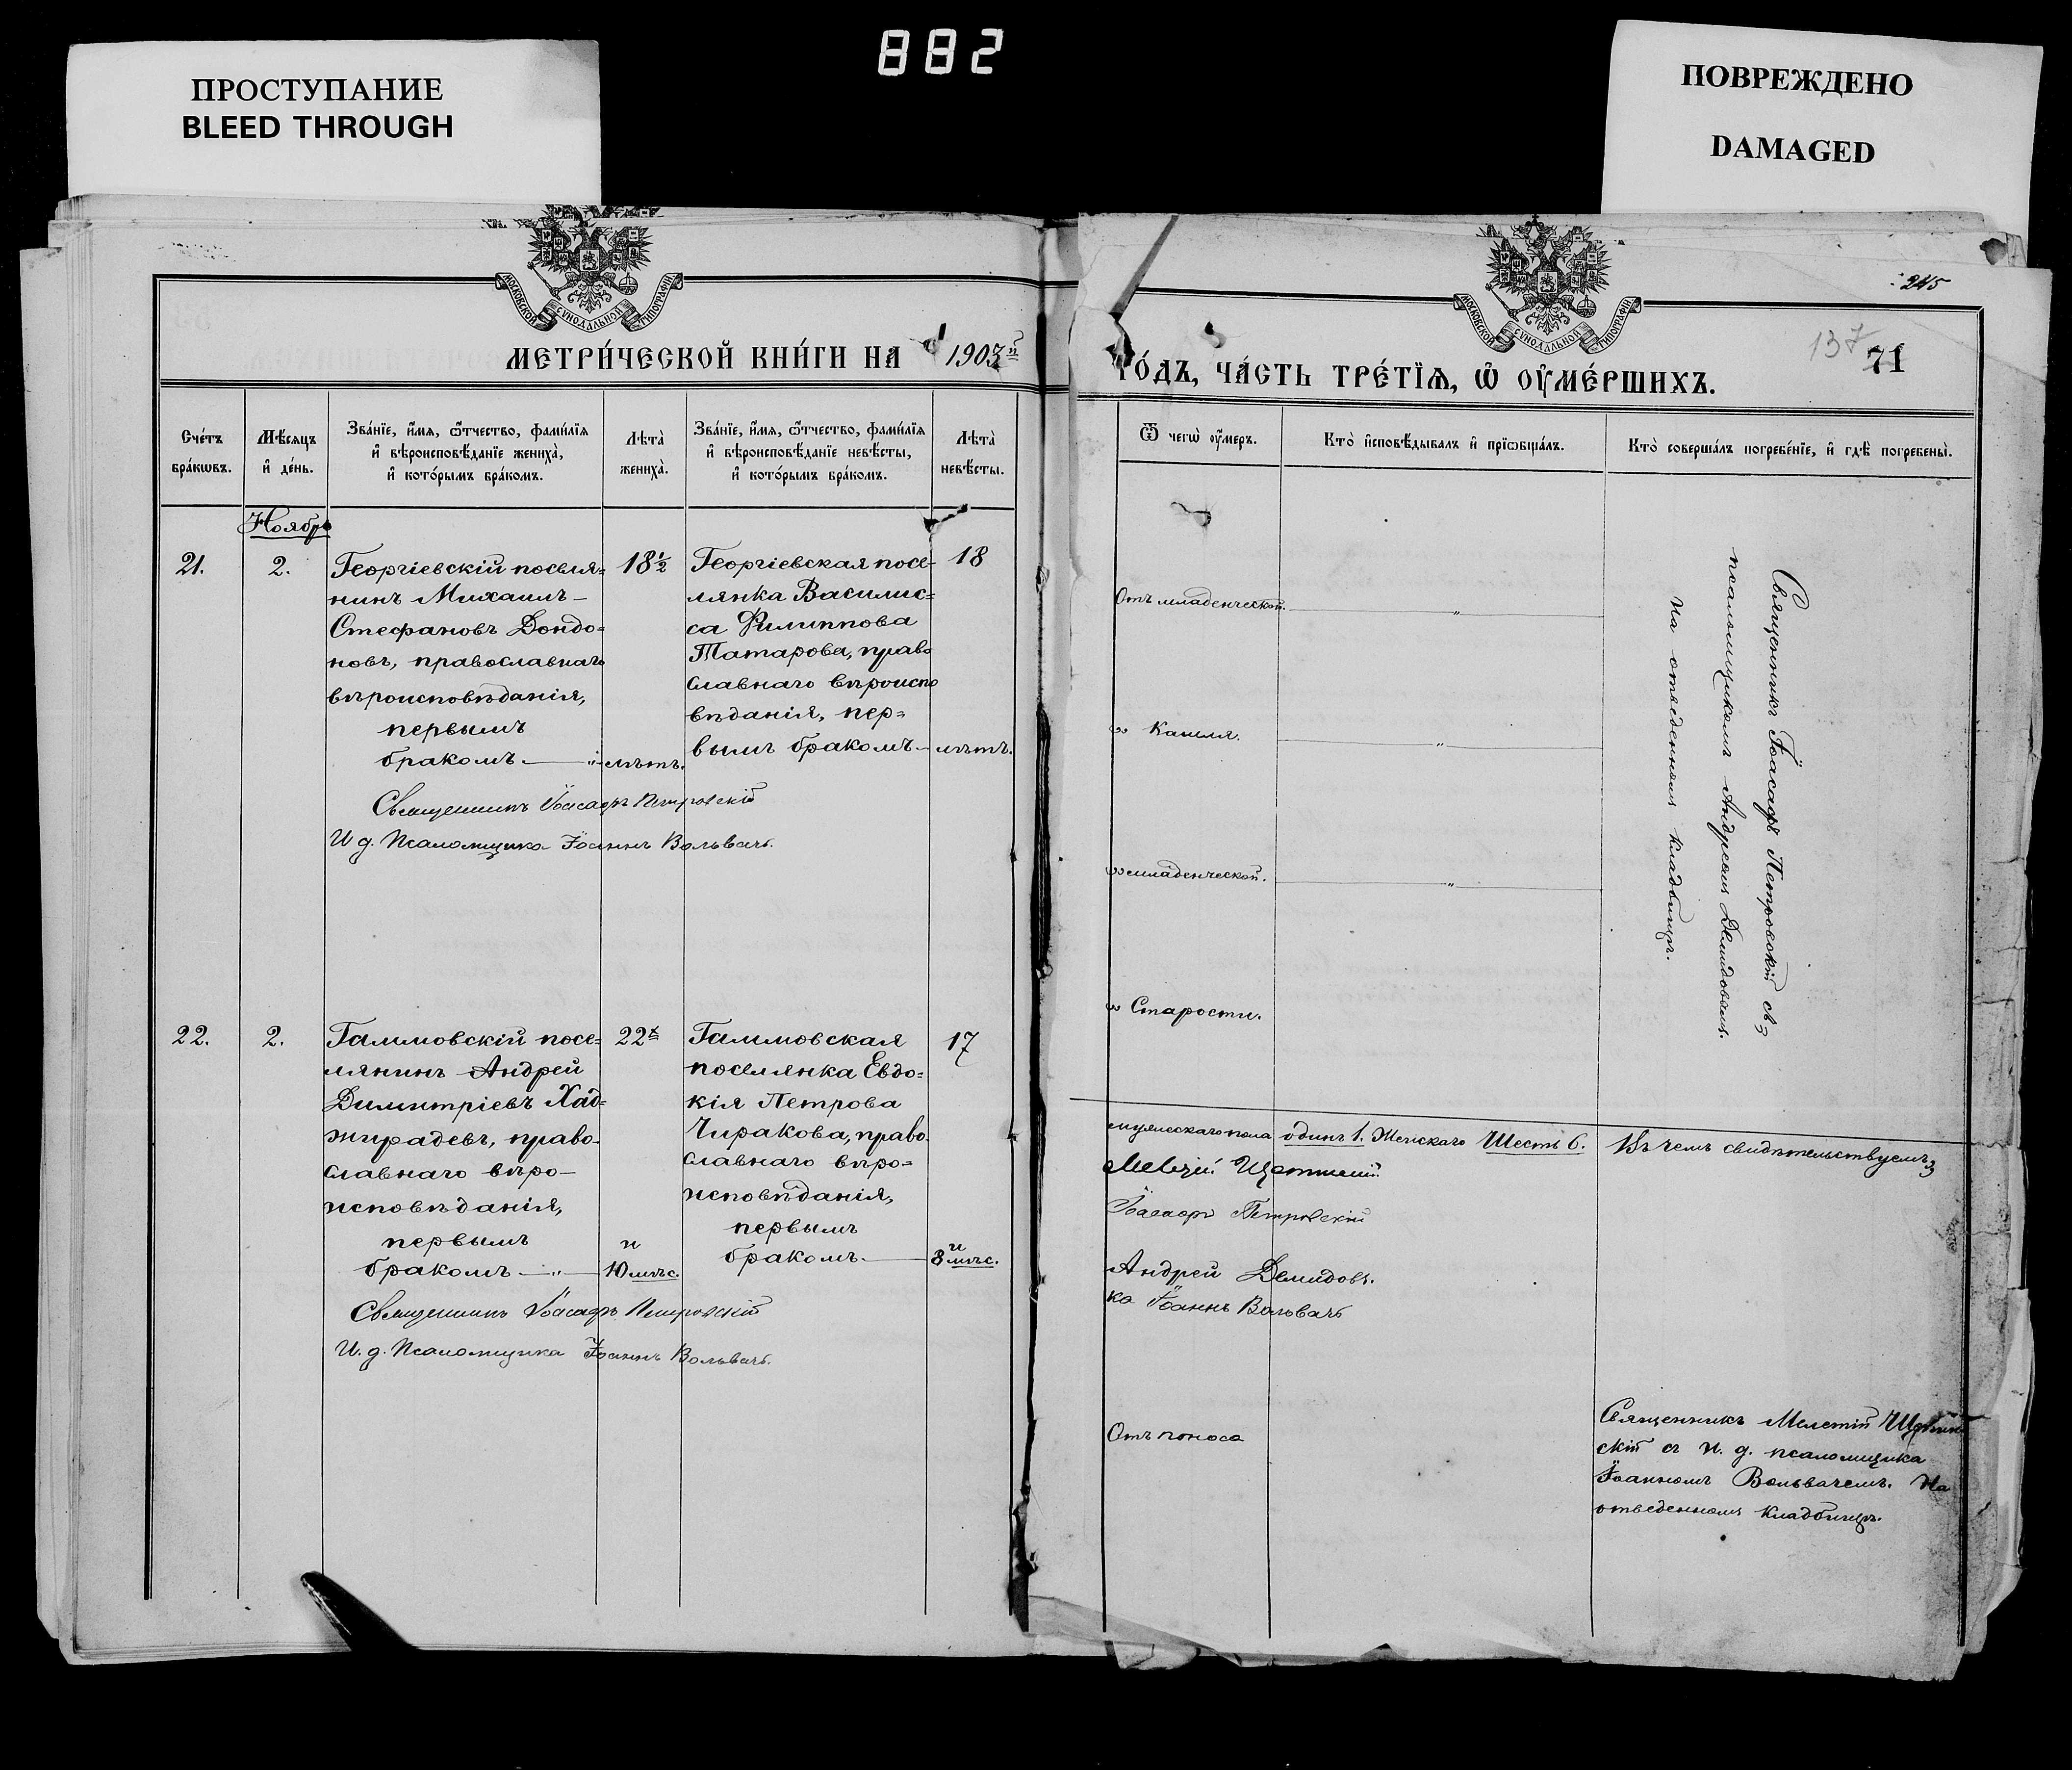 882
ПРОСТУПАНИЕ
BLEED THROUGH
ПОВРЕЖДЕНО
DAMAGED
МОСКОВСКОЙ СѴНОДАЛЬНОЙ ТИПОГРАФІИ
МЕТРИ́ЧЕСКОЙ КНИ́ГИ НА 1903й
Сче́тъ бра́кѡвъ.
Мѣ́сяцъ и҆ де́нь.
Зва́нїе, и҆́мя, ѻ҆́тчество, фами́лїя и҆ вѣроисповѣ́данїе жениха̀, и҆ кото́рымъ бра́комъ.
Лѣта̀ жениха̀.
Зва́нїе, и҆́мя, ѻ҆́тчество, фами́лїя и҆ вѣроисповѣ́данїе невѣ́сты, и҆ кото́рымъ бра́комъ.
Лѣта̀ невѣ́сты.
Ноябрь
21.
2.
Георгіевскій поселя=
нинъ Михаилъ –
Стефановъ Дондо=
новъ, православнаго
вѣроисповѣданія,
первымъ
бракомъ. — „ –
18½
лѣтъ.
Георгіевская посе-
лянка Василис=
са Филиппова
Татарова, право
славнаго вѣроиспо
вѣданія, пер=
вымъ бракомъ –
18
лѣтъ.
Священникъ Іоасафъ Петровскій
И д. Псаломщика Іоаннъ Вольвачъ.
22.
2.
Галимовскій посе=
лянинъ Андрей
Димитріевъ Хад=
жирадевъ, право-
славнаго вѣро –
исповѣданія,
первымъ
бракомъ – „ —
22х
и
10 мѣс.
Галимовская
поселянка Евдо=
кія Петрова
Чиракова, право-
славнаго вѣро=
исповѣданія,
первымъ
бракомъ. —
17
и
8 мѣс.
Священникъ Іоасафъ Петровскій
И. д. Псаломщика Іоаннъ Вольвачъ.
245
МОСКОВСКОЙ СѴНОДАЛЬНОЙ ТИПОГРАФІИ
137
71
ГО́ДЪ, ЧА́СТЬ ТРЕ́ТЇѦ, Ѡ҆ ОУ҆МЕ́РШИХЪ.
Ѿ чегѡ̀ оу҆́меръ.
Кто̀ и҆сповѣ́дывалъ и҆ прїѻбща́лъ.
Кто̀ соверша́лъ погребе́нїе, и҆ гдѣ̀ погребены̀.
Отъ младенческой. „
„ Кашля. „
„ младенческой. „
„ Старости.
Священникъ Іоасафъ Петровскій съ
псаломщикомъ Андреемъ Демидовымъ.
На отведенномъ кладбищѣ.
мужескаго пола одинъ 1. Женскаго Шесть 6. Въ чемъ свидѣтельствуемъ
Іоасафъ Петровскій
Андрей Демидовъ.
ка Іоаннъ Вольвачъ
Отъ поноса
Священникъ Мелетій
скій съ и. д. псаломщика
Іоанномъ Вольвачемъ. На
отведенномъ кладбищѣ.